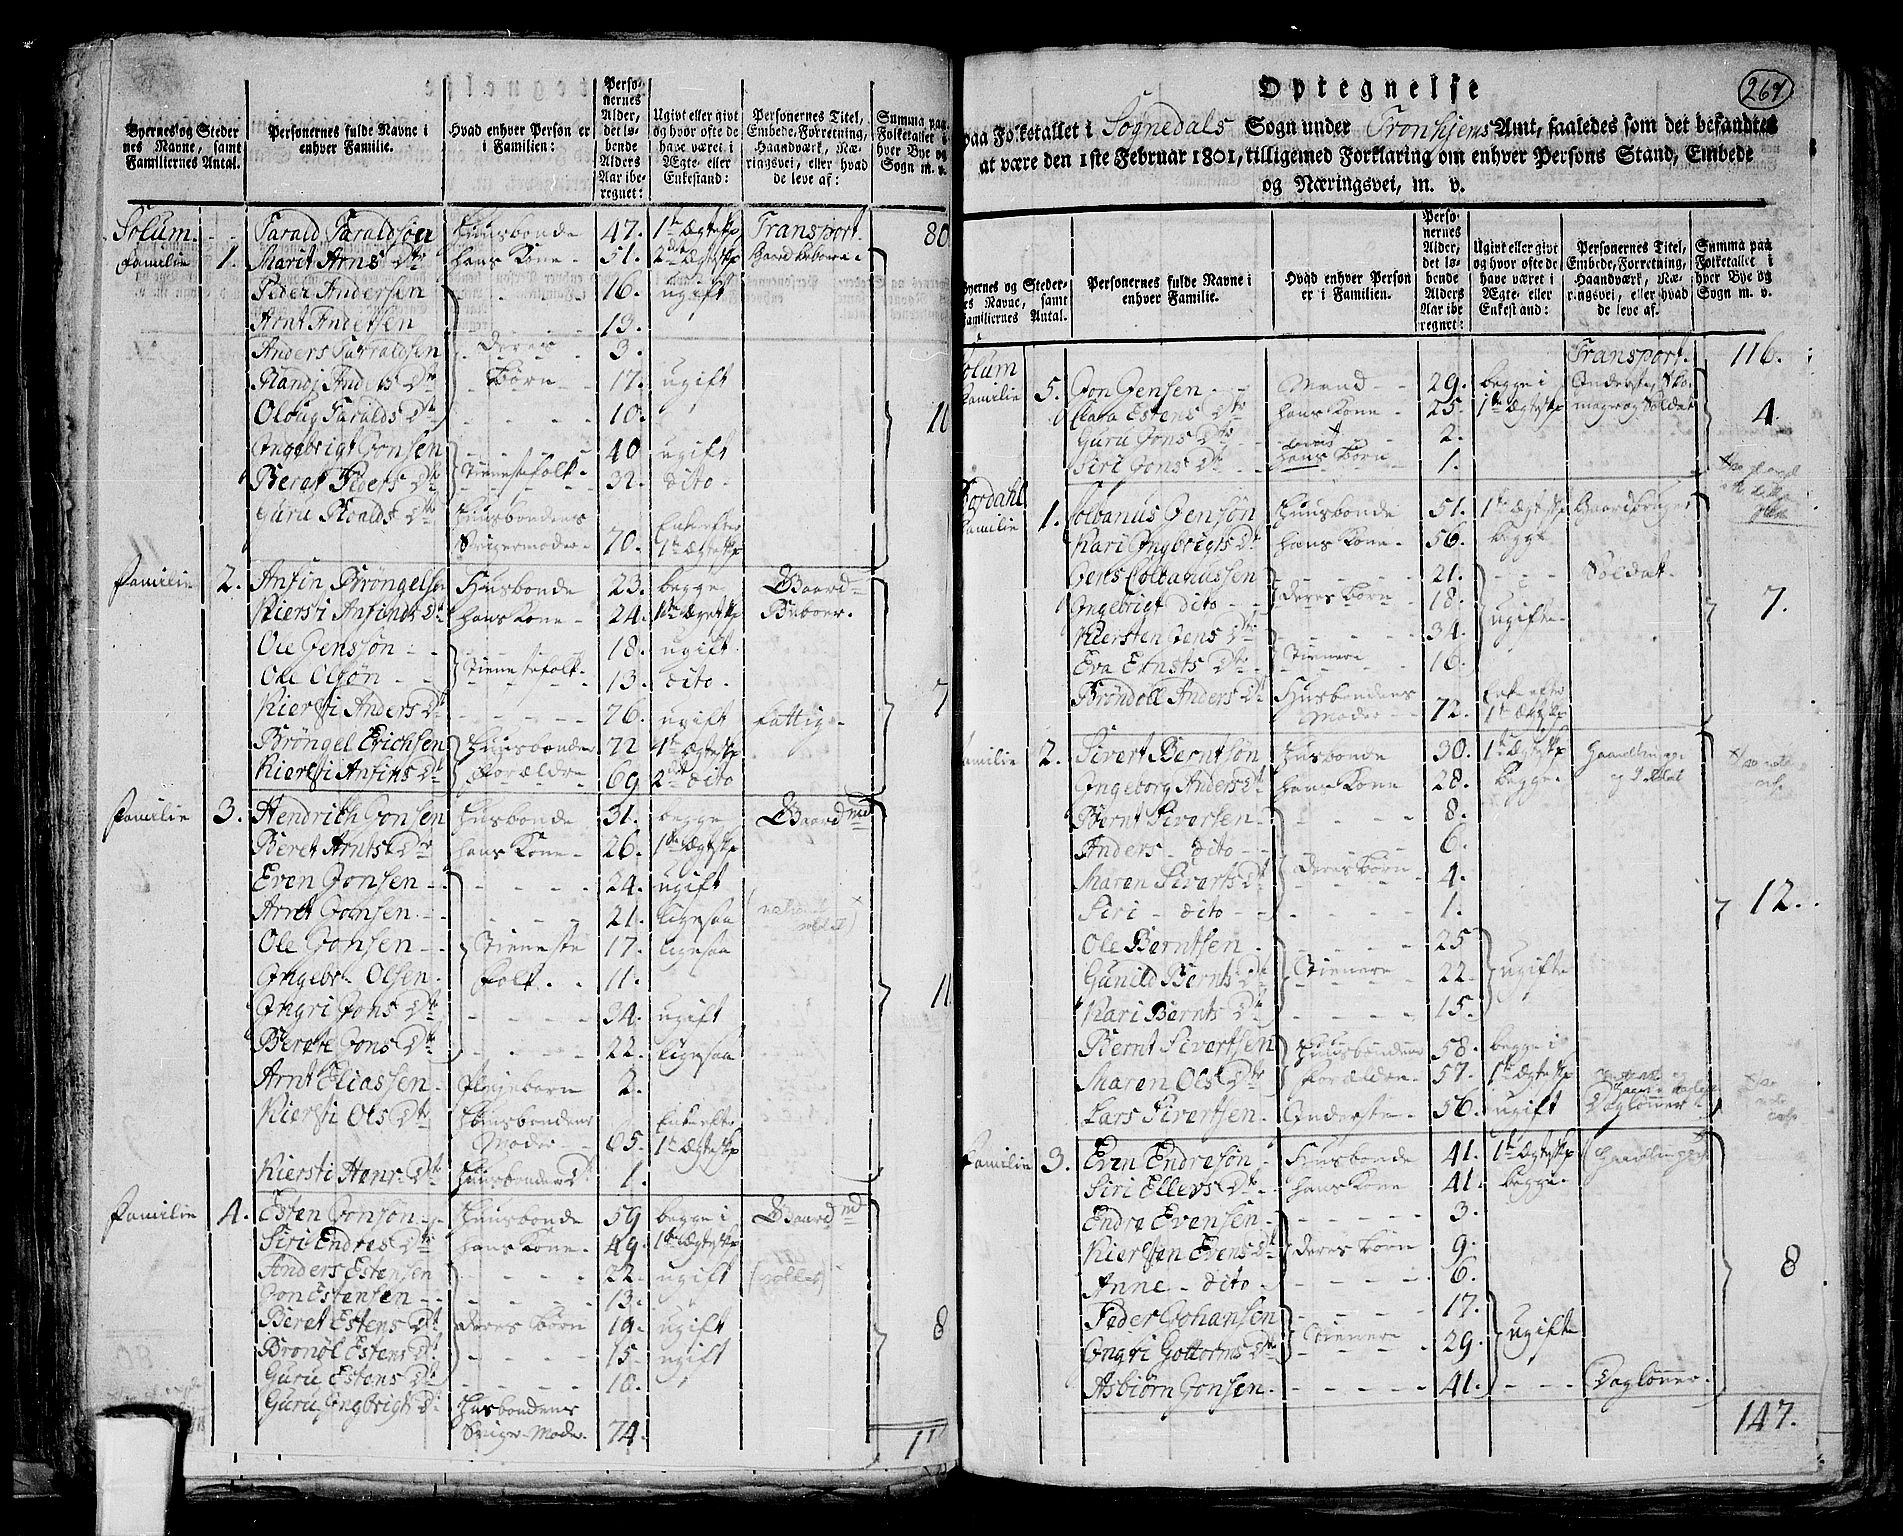 Byernes og Steder
nes Navne, samt
Familiernes Antal.
Personernes fulde Navne i
enhver Familie.
Hvad enhver Person er
i Familien:
Perso-
nernes
Alder,
det lø-
bende
Alders
Aar ibe-
regnet:
Ugivt eller givt
og hvor ofte de
have været i
Ægte- eller
Enkestand:
Personernes Titel,
Embede, Forretning,
Haandværk, Næ-
ringsvei, eller hvad
de leve af:
Summa paa
Folketallet i
hver Bye og
Sogn m. v.
Solum. Tarald Taraldsøn Huusbonde 47. 1te Ægteskp Transport. 80
Familie 1. Marit Arns Dtr hans Kone 51. 2det Ægteskp Gaardbeboere
Peder Andersen 16. ugift
Arnt Andersen 13.
Anders Taraldsen Deres 3.
Randi Anders Dtr Børn 17. ugift
Oloug Taralds Dtr 10. 10
Ingebrigt Jonsen 40 ugift
Beret Peders Dtr Tienestefolk 32. dito
Guru Roalds Dtr Huusbondens Enke efter
Svigermoder 70. 1te Ægteskp
Familie 2. Anfin Brøngelsøn Husbonde 23. begge Gaard-
Kiersti Anfinds Dtr hans Kone 24. 1te Ægteskp Beboer.
Ole Jenssøn 18. ugift
Ole Olsøn Tienestefolk 13. dito
Kiersti Anders Dtr 76. ugift fattig 7
Brøngel Erichsen Huusbondens 72 1te Ægteskp
Kiersti Anfins Dtr Forældre 69 2det dito
Familie 3. Hendrich Jonsen Husbonde 31. begge Gaardmd
Beret Arnts Dtr hans Kone 26. 1te Ægteskp
Even Jonsen 24. ugift
Arnt Jonsen 21. ligesaa
Ole Jonsen Tieneste 17. ligesaa
Ingebr. Olsen folk 11.
Ingri Jons Dtr 34. ugift 11
Beret Jons Dtr 22. ligesaa
Arnt Eliassen Pleiebarn 2.
Kiersti Ols Dtr Huusbondens Enke efter
Moder 65. 1te Ægteskp
Kiersti Henr. Dtr Huusbondens Dt. 1.
Familie 4. Esten Jonsøn Huusbonde 59 begge i Gaardmd
Siri Endres Dtr hans Kone 49. 1te Ægteskp
Anders Estensen 22. ugift (soldat)
Jon Estensen 13.
Beret Estens Dtr deres Børn 19. ugift 8
Brønøl Estens Dtr 15. ugift
Guru Estens Dtr 10.
Guru Ingbrigts Dtr Husbondens
Sviger-Moder 74.
264
Optegnelse
paa Folketallet i Sognedals Sogn under Tronhjems Amt, saaledes som det befandtes
at være den 1ste Februar 1801, tilligemed Forklaring om enhver Persons Stand, Embede
og Næringsvei, m. v.
Byernes og Steder-
nes Navne, samt
Familiernes Antal.
Personernes fulde Navne i
enhver Familie.
Hvad enhver Person
er i Familien.
Perso-
nernes
Alder,
det lø-
bende
Alders
Aar ibe-
regnet:
Ugivt eller givt
og hvor ofte de
have været i
Ægte- eller
Enkestand:
Personernes Titel,
Embede, Forretning,
Haandværk, Næ-
ringsvei, eller hvad
de leve af.
Summa paa
Folketallet i
hver Bye og
Sogn m. v.
Transport. 116.
Solum
Familie 5. Jon Jensen Mand 29. begge i Inderste, Sko-
Clara Estens Dtr hans Kone 25. 1te Ægteskp mager og Soldat 4.
Guru Jons Dtr 2.
Siri Jons Dtr hans Børn 1.
Familie 1. Colbanus Jensøn Huusbonde 51. 1te Ægteskp Gaardbruger
Kari Ingbrigts Dtr hans Kone 56. begge
Jens Colbanussen 21. Soldat.
Ingebrigt dito deres Børn 18. 7.
Kiersten Jens Dtr 34. ugifte
Eva Ernsts Dtr Tienere 16.
Brøndoll Anders Dt Husbondens Enke efter
Moder 72. 1te Ægteskp
Familie 2. Sivert Berntsøn Husbonde 30. 1te Ægteskp
Ingeborg Anders Dt hans Kone 28. begge
Bernt Sivertsen 8.
Anders dito 6.
Maren Siverts Dt deres Børn 4.
Siri dito 1. 12.
Ole Berntsen 25
Gunild Bernts Dt Tienere 22. ugifte
Kari Bernts Dtr 15.
Bernt Sivertsen Huusbondens 58. begge i
Maren Ols Dtr Forældre 57. 1te Ægteskp
Lars Sivertsen Inderste 56. ugift Daglønner
Familie 3. Even Endresøn Husbonde 41. 1te Ægteskp
Siri Ellers Dt hans Kone 41. begge
Endre Evensen 3.
Kiersten Evens Dt deres Børn 9.
Anne dito 6. 8
Peder Johansen 17.
Ingri Gottorms Dtr Tienere 29. ugifte
Asbiørn Jonsen 41. Daglønner.
147.